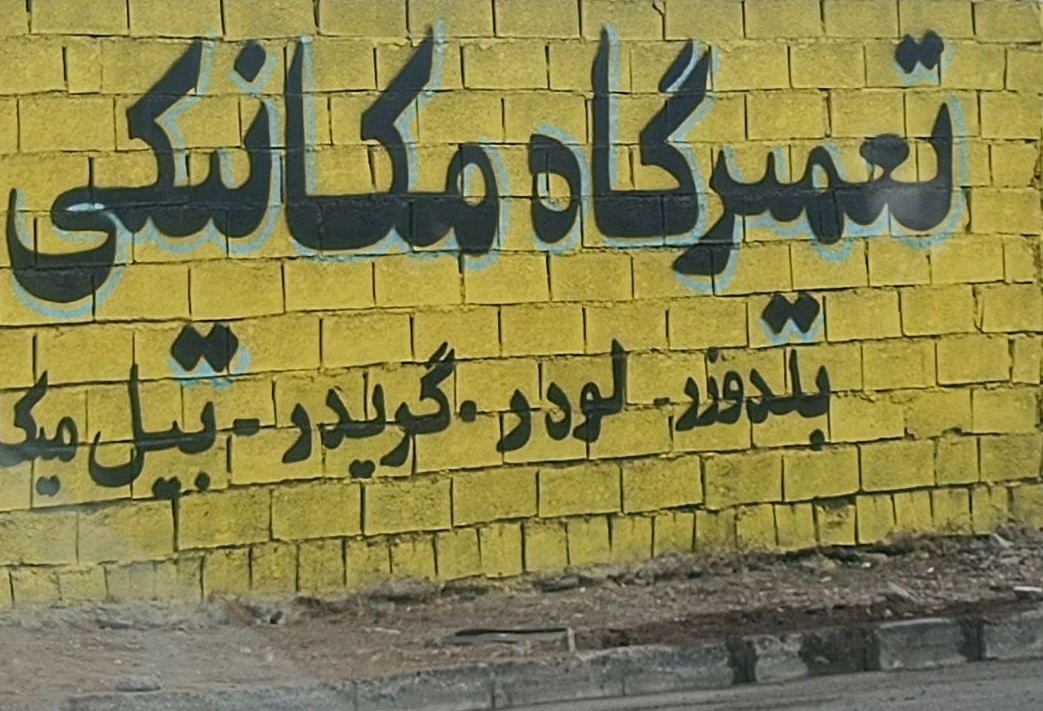 تعمیرگاه مکانیکی
بلدوزر - لودر - گریدر - بیل میک